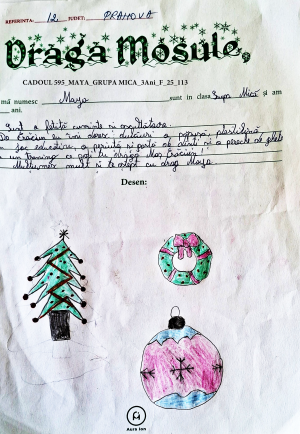 REFERINTA: 12 JUDET: PRAHOVA
Draga Mosule,
CADOUL 595_MAYA_GRUPA MICA_3Ani_F_25_113
mă numesc Maya sunt in clasa Grupa Mică și am
ani.
Sunt o fetiță cuminte și ascultătoare.
De Crăciun eu îmi doresc dulciuri, o păpușă, plastilină,
joc educativ, o periuță și pastă de dinți și o pereche de ghete
un trening ce poți tu dragă Moș Crăciun!
Mulțumesc mult și te aștept cu drag Maya.
Desen:
Aura Ion